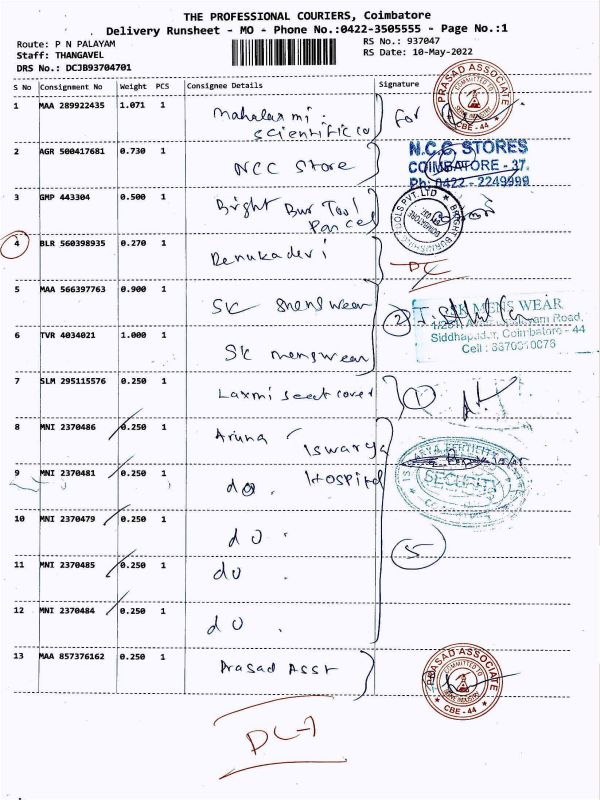 THE PROFESSIONAL COURIERS, Coimbatore
Delivery Runsheet - MO - Phone No.:0422-3505555 - Page No.:1
Route: P N PALAYAM
RS No.: 937047
Staff: THANGAVEL
RS Date: 10-May-2022
DRS No.: DCJB93704701
S No Consignment No Weight PCS Consignee Details Signature
1 MAA 289922435 1.071 1 Mahalaxmi
Scientific co for
PRASAD ASSOCIATE
COMMITTED TO
CBE - 44
2 AGR 500417681 0.730 1 NCC Store
N.C.C. STORES
COIMBATORE - 37.
Ph: 0422 - 2249999
3 GMP 443304 0.500 1 Bright Bur Tool
Parcel
4 BLR 560398935 0.270 1 Renukadevi
5 MAA 566397763 0.900 1 SK menswear
2
MENS WEAR
Road,
Siddhapudur, Coimbatore - 44
Cell :
6 TVR 4034021 1.000 1 SK menswear
7 SLM 295115576 0.250 1 Laxmi seat cover
1
8 MNI 2370486 0.250 1 Aruna Iswarya
Hospital
9 MNI 2370481 0.250 1 do.
SECURITY
10 MNI 2370479 0.250 1 do.
11 MNI 2370485 0.250 1 do.
5
12 MNI 2370484 0.250 1 do.
13 MAA 857376162 0.250 1 Prasad Asst
PRASAD ASSOCIATE
COMMITTED TO
CBE - 44
DC-1